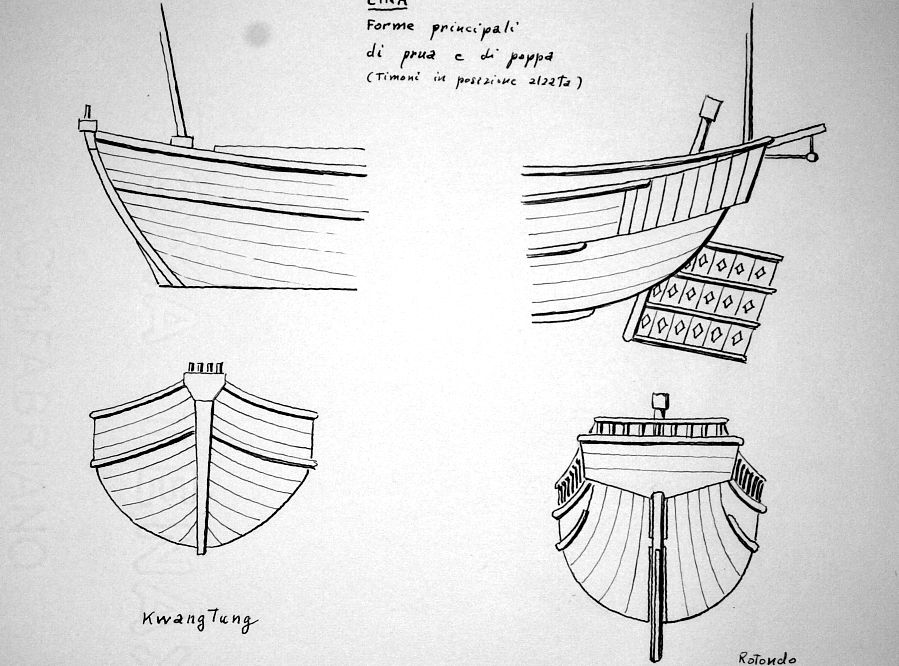 CINA
Forme principali
di prua e di poppa
(Timoni in posizione alzata)
KwangTung
Rotondo